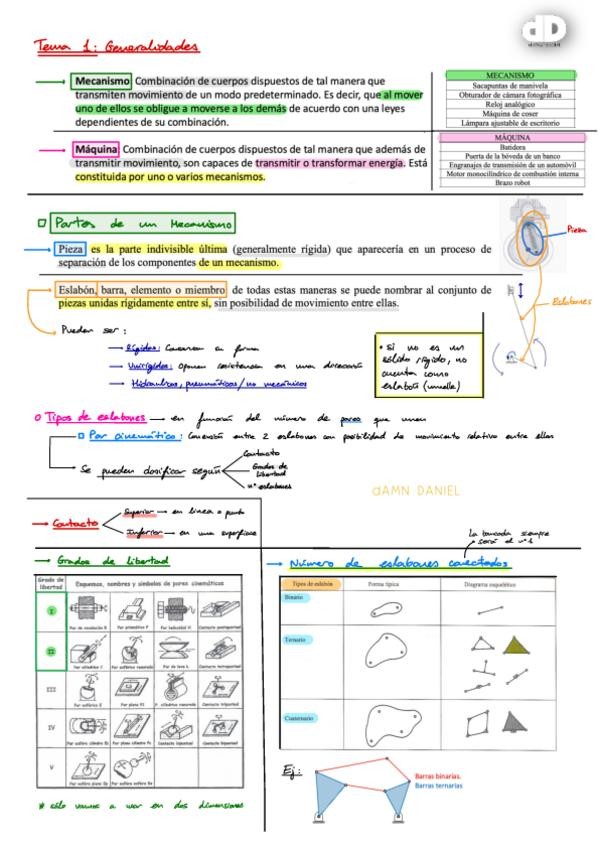 Tema 1: Generalidades
Mecanismo Combinación de cuerpos dispuestos de tal manera que
transmiten movimiento de un modo predeterminado. Es decir, que al mover
uno de ellos se obligue a moverse a los demás de acuerdo con una leyes
dependientes de su combinación.
MECANISMO
Sacapuntas de manivela
Obturador de cámara fotográfica
Reloj analógico
Máquina de coser
Lámpara ajustable de escritorio
Máquina Combinación de cuerpos dispuestos de tal manera que además de
transmitir movimiento, son capaces de transmitir o transformar energía. Está
constituida por uno o varios mecanismos.
MÁQUINA
Batidora
Puerta de la bóveda de un banco
Engranajes de transmisión de un automóvil
Motor monocilíndrico de combustión interna
Brazo robot
Partes de un Mecanismo
Pieza es la parte indivisible última (generalmente rígida) que aparecería en un proceso de
separación de los componentes de un mecanismo.
Pieza
Eslabón, barra, elemento o miembro de todas estas maneras se puede nombrar al conjunto de
piezas unidas rígidamente entre sí, sin posibilidad de movimiento entre ellas.
Eslabones
Pueden ser:
Rígidos: Conservan su forma
Unirígidos: Oponen resistencia en una dirección
Hidraulicos, pneumáticos / no mecánicos
• si no es un
sólido rígido, no
cuenta como
eslabón (muelle)
Tipos de eslabones en función del número de pares que unen
Par cinemático: Conexión entre 2 eslabones con posibilidad de movimiento relativo entre ellos
Se pueden clasificar según
Contacto
Grados de
libertad
nº eslabones
dAMN DANIEL
Contacto
Superior en linea o punto
Inferior en una superficie
La bancada siempre
será el nº1
Grados de libertad
Grado de
libertad
Esquemas, nombres y símbolos de pares cinemáticos
I
Par de revolución R
Par prismático P
Par helicoidal H
II
Par cilíndrico C
Par de leva
III
Par esférico E
Par plano Pl
IV
V
* sólo vamos a ver en dos dimensiones
Número de eslabones conectados
Tipos de eslabón
Forma típica
Diagrama esquelético
Binario
Ternario
Cuaternario
Ej:
Barras binarias.
Barras ternarias